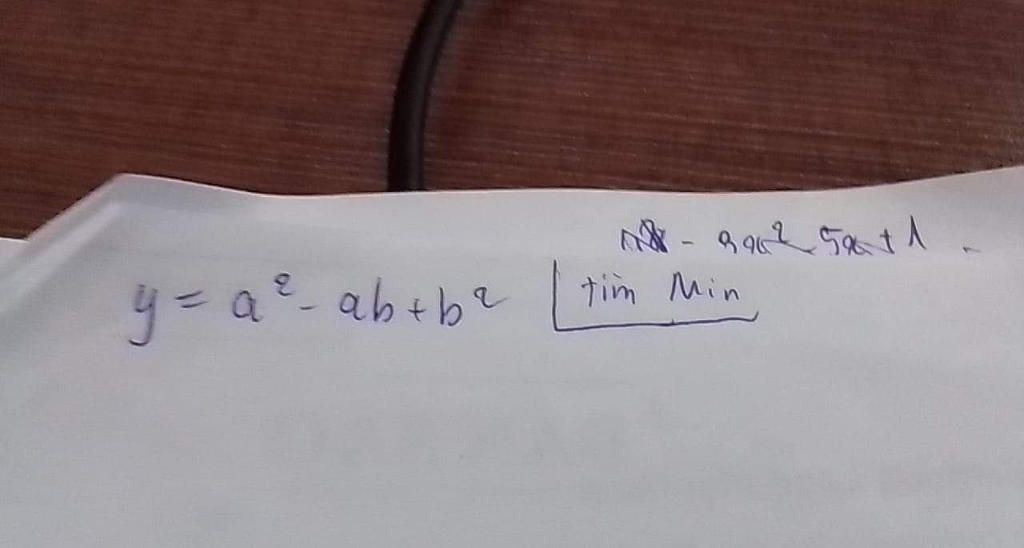 - 3x² - 5x + 1
y = a² - ab + b² tìm Min